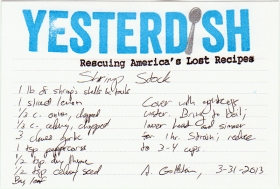 YESTERDISH
Rescuing America's Lost Recipes
Shrimp Stock
1 lb of shrimp, shells & tails
1 sliced lemon
1/2 c. onion, chopped
1/2 c. celery, chopped
3 cloves garlic
1 tsp peppercorns
1/2 tsp dry thyme
1/2 tsp celery seed
Bay leaf
Cover with
water. Bring to boil;
lower heat and simmer
for 1 hr. Strain; reduce
to 3-4 cups
A. 3-31-2013